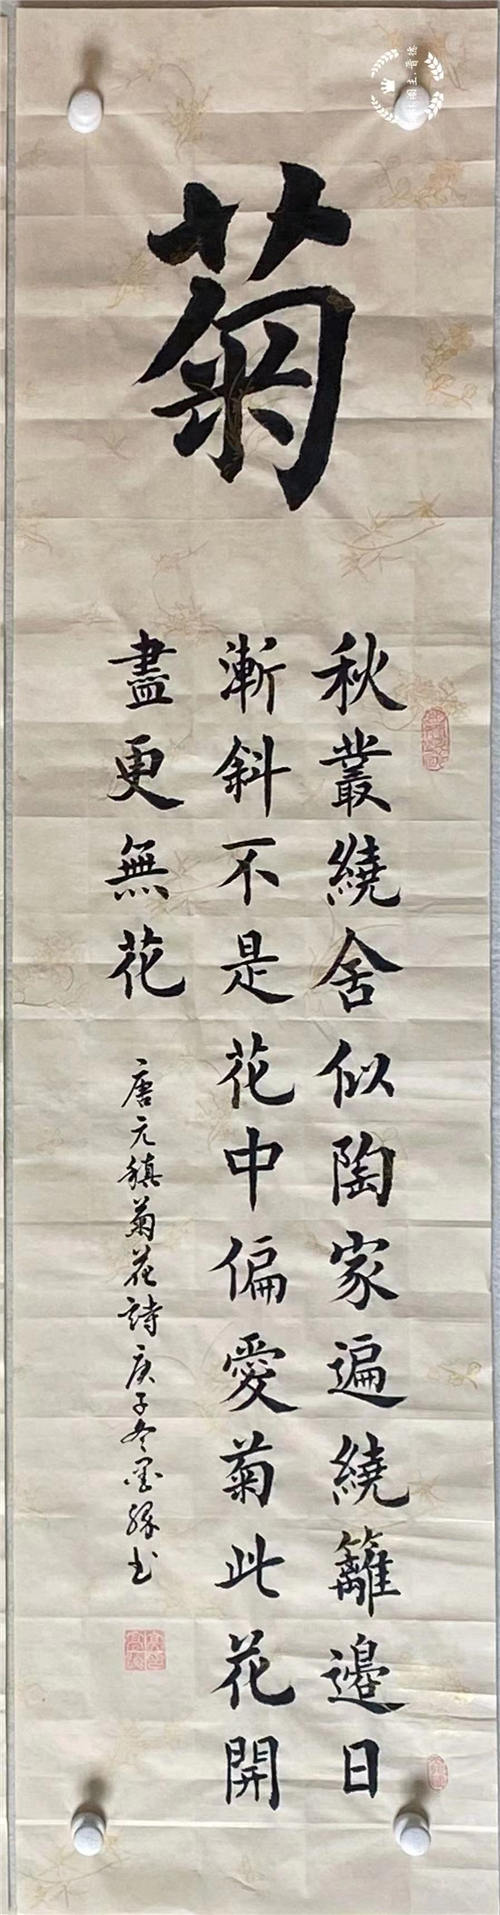 菊
秋叢繞舍似陶家遍繞籬邊日
漸斜不是花中偏愛菊此花開
盡更無花
唐元稹菊花詩庚子冬墨緣书